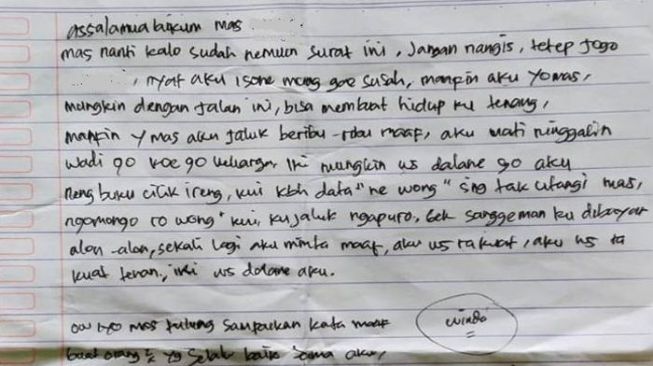 assalamualaikum mas
mas nanti kalo sudah nemuin surat ini, jangan nangis, tetep jogo
, nyaf aku isone mung gae susah, maapin aku yo mas,
mungkin dengan jalan ini, bisa membuat hidup ku tenang,
maapin y mas aku jaluk beribu-ribu maaf, aku mati ninggalin
wadi go koe go keluarga. Ini mungkin ws dalane go aku
neng buku cilik ireng, kui kbh data" ne wong" sing tak utangi mas,
ngomongo ro wong" kui, ku jaluk ngapuro, sanggeman ku dibayar
alon-alon, sekali lagi aku minta maaf, aku ws ra kuat, aku ws ra
kuat tenan, iki ws dalane aku.
ow iyo mas tulung sampaikan kata maaf
buat orang2 yg selalu baik sama aku,
winda